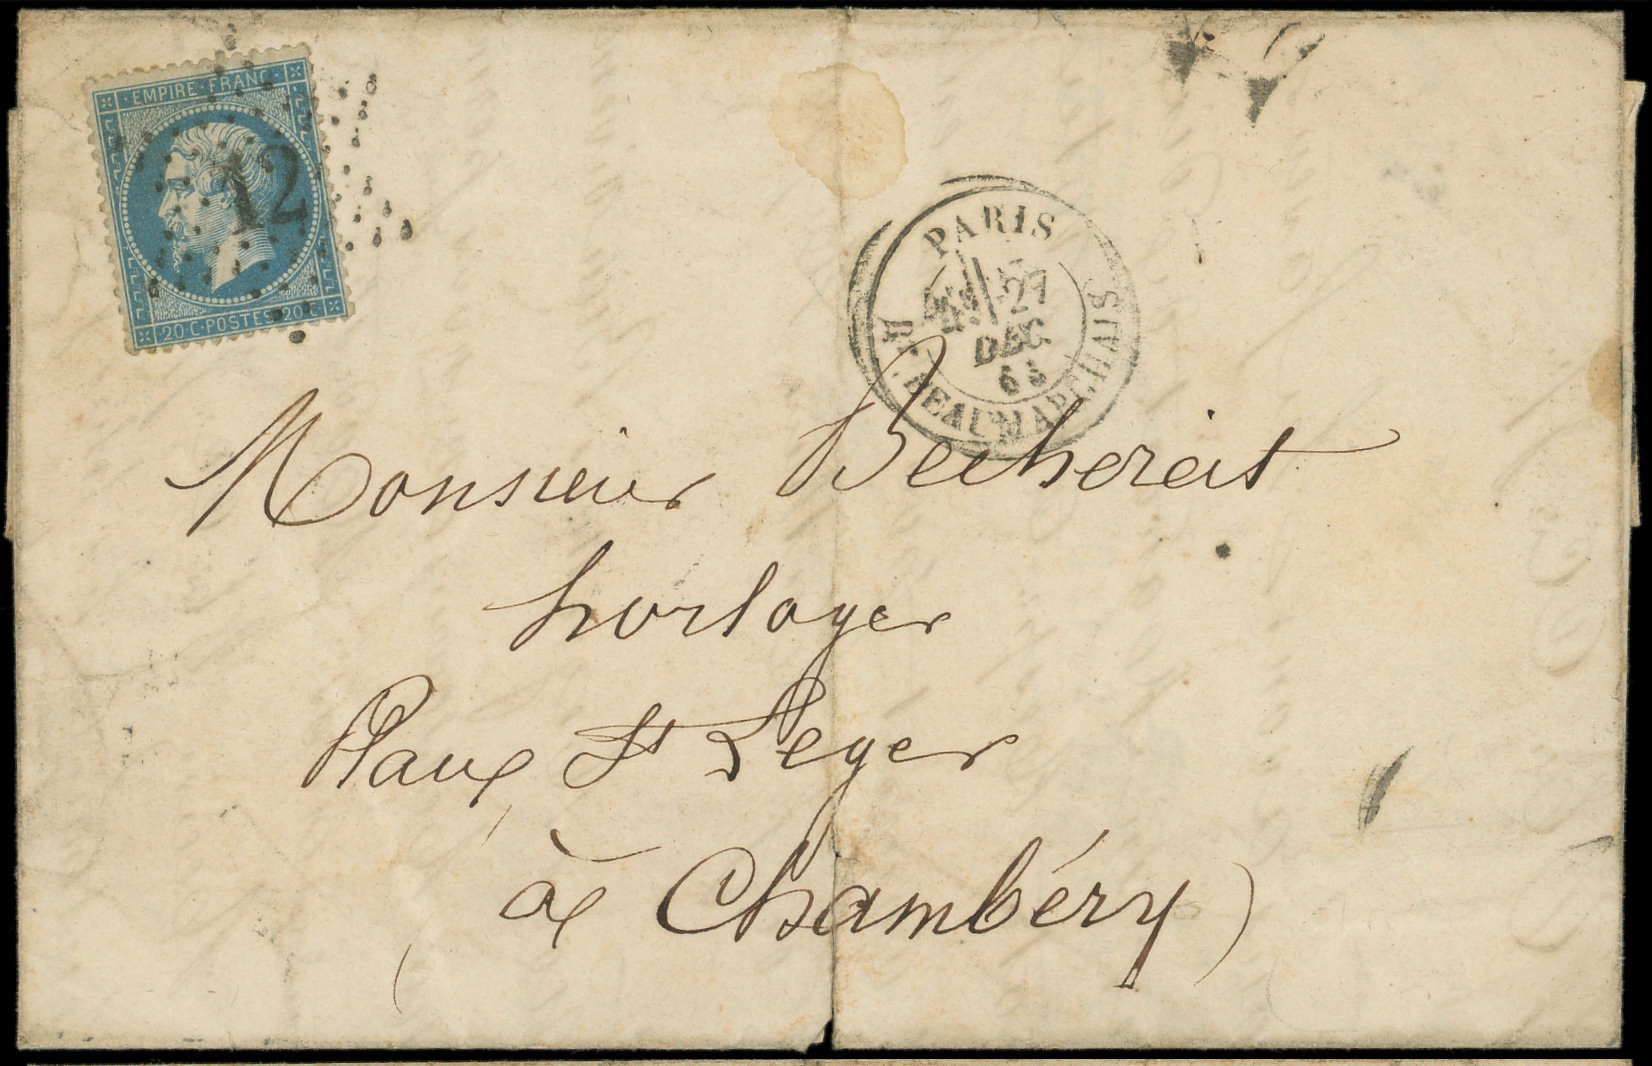 EMPIRE·FRANC·
12
20·C·POSTES·20·C
PARIS
27
DEC
63
BD. BEAUMARCHAIS
Monsieur Becherat
horloger
Place St Leger
à Chambéry